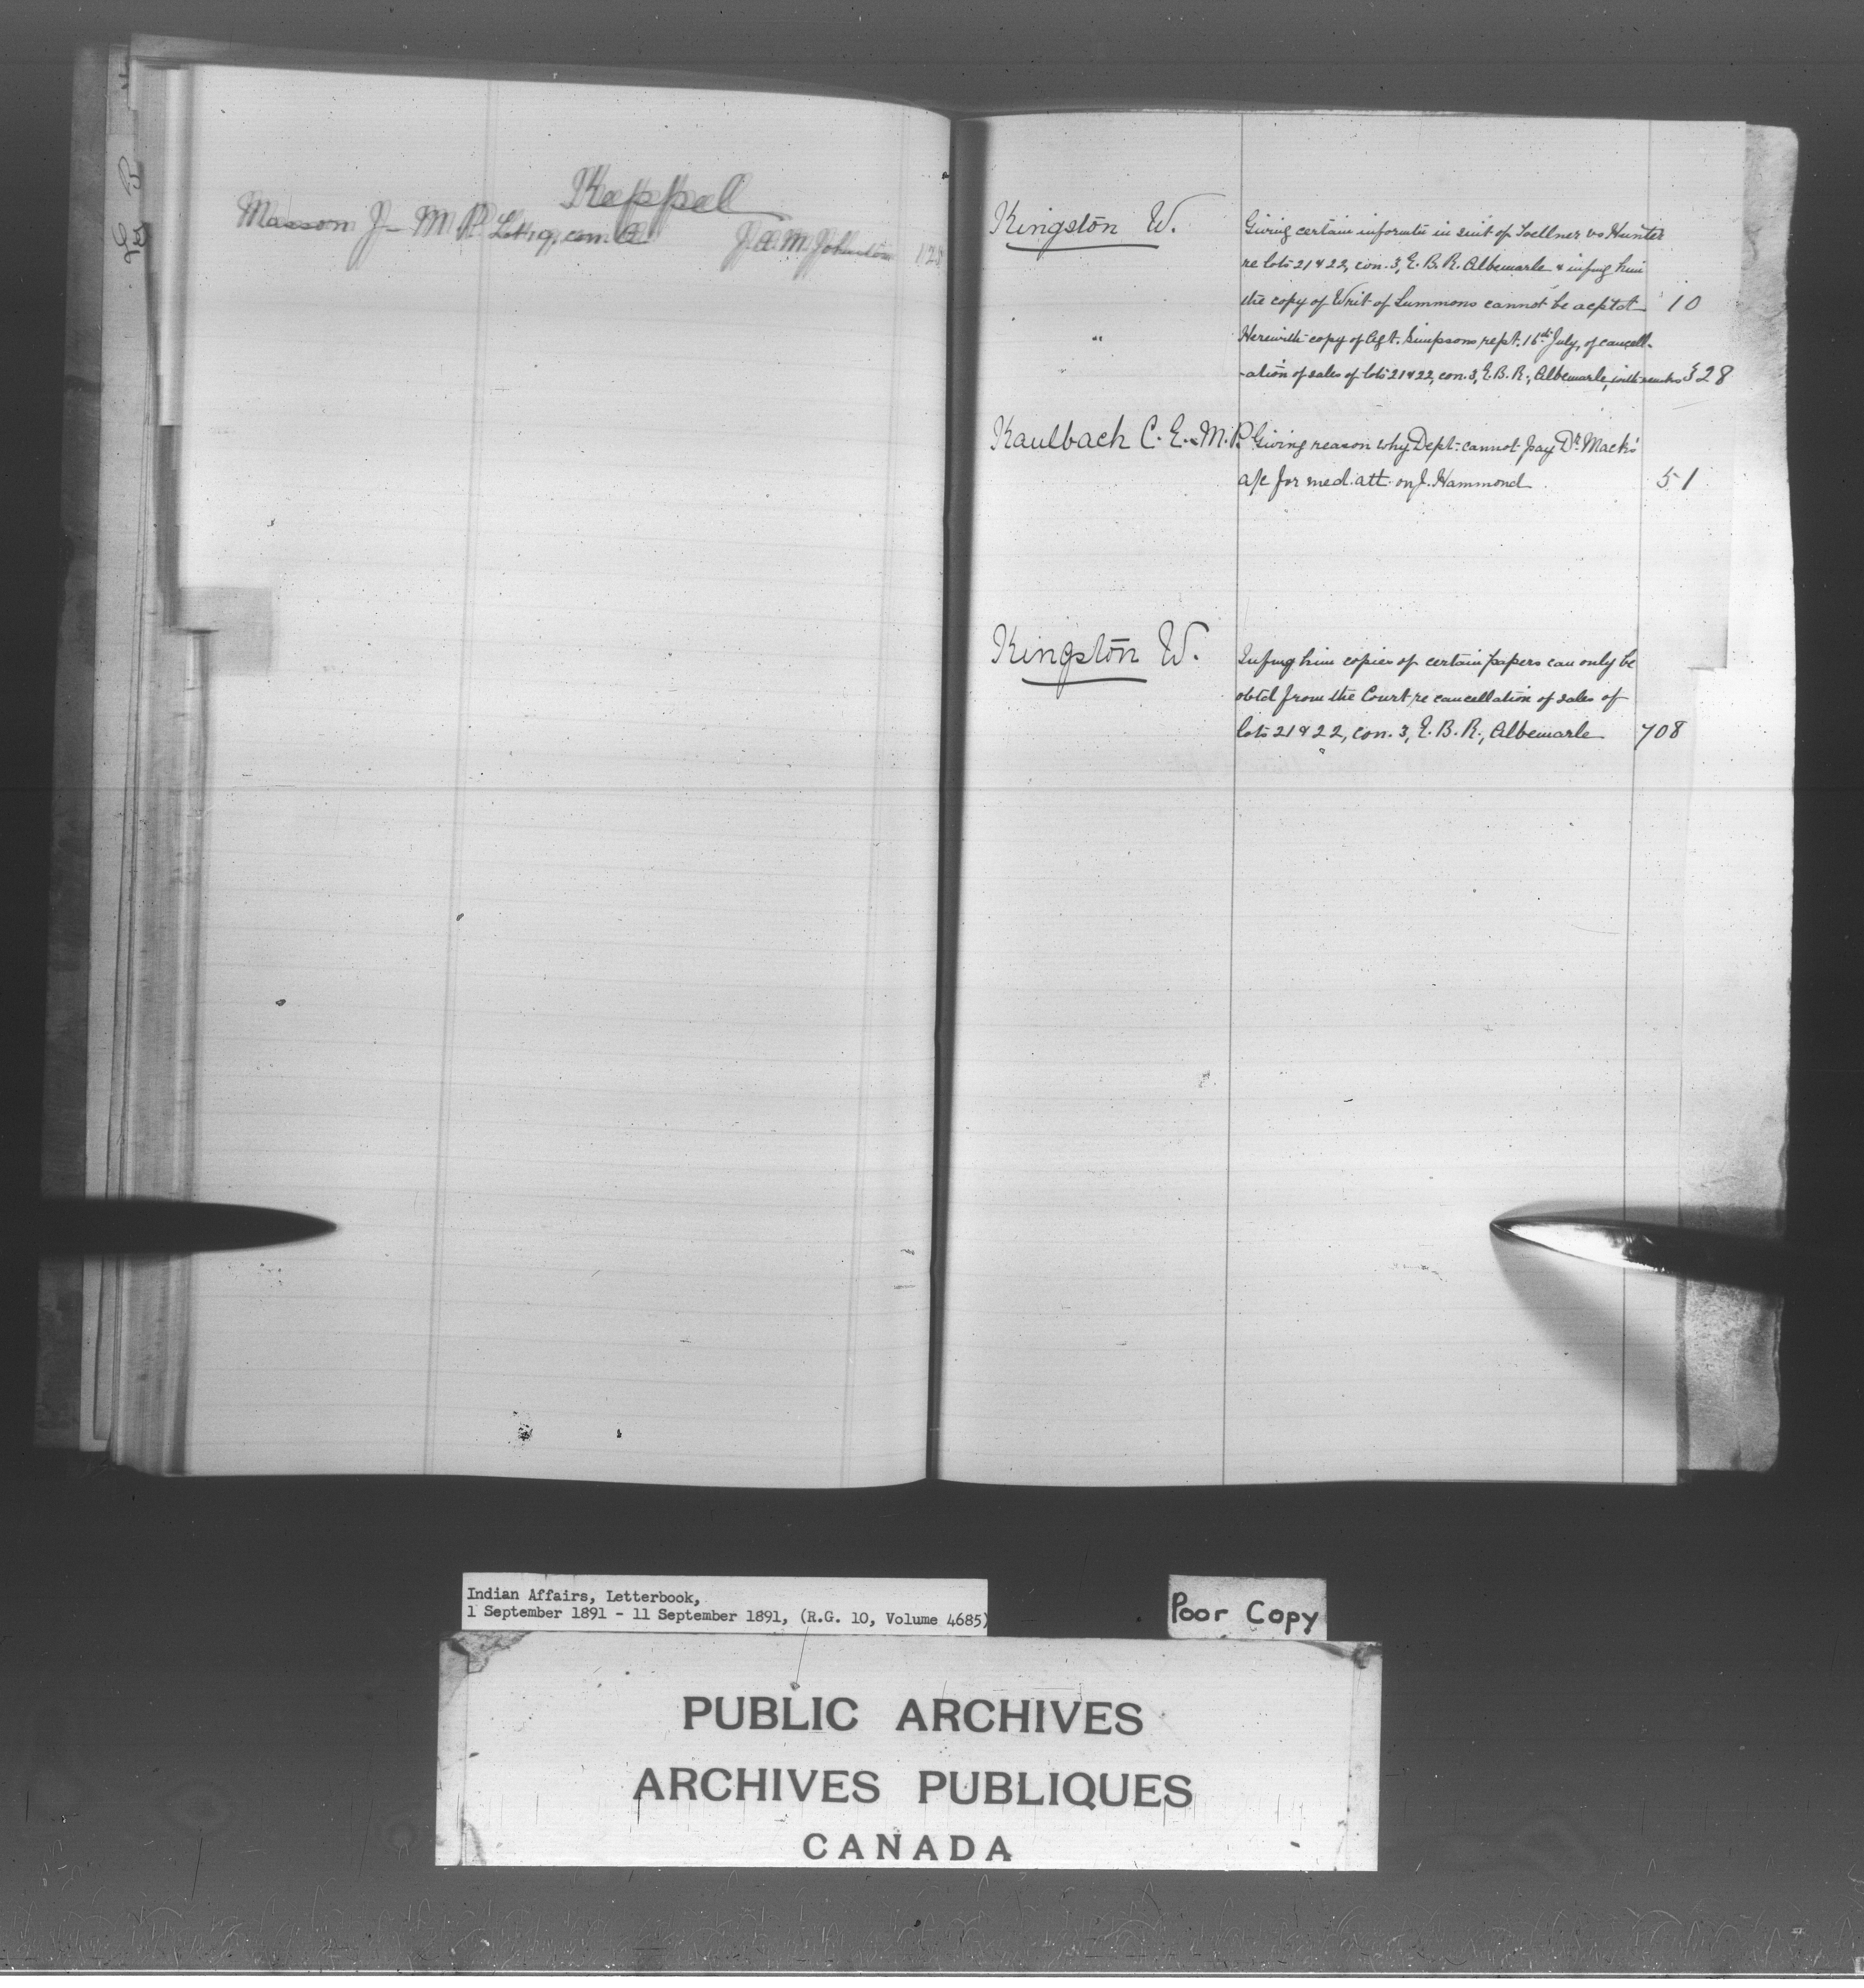 Keppel
Masson J- M.P. Lot 19, con. A J. A. M. Johnston 128
Kingston W. Giving certain informatn in suit of Zoellner vs Hunter
re lots 21 & 22, con. 3, E. B. R. Albemarle & infmg him
the copy of Writ of Summons cannot be acptd 10
" Herewith copy of Agt. Simpsons rept. 16th July, of cancell-
-ation of sales of lots 21 & 22, con. 3, E. B. R., Albemarle, with 328
Kaulbach C. E. M.P. Giving reason why Dept. cannot pay Dr. Mack's
a/c for med. att. on J. Hammond 51
Kingston W. Infmg him copies of certain papers can only be
obtd from the Court re cancellation of sales of
lots 21 & 22, con. 3, E. B. R., Albemarle 708
Indian Affairs, Letterbook,
1 September 1891 - 11 September 1891, (R.G. 10, Volume 4685)
Poor Copy
PUBLIC ARCHIVES
ARCHIVES PUBLIQUES
CANADA